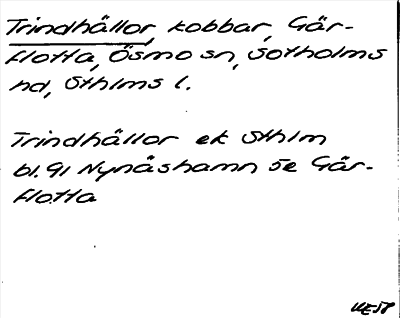 Trindhällor, kobbar, Går-
flotta, Ösmo sn, Sotholms
hd, Sthlms l.
Trindhällor ek Sthlm
bl. 91 Nynäshamn 5e Går-
flotta